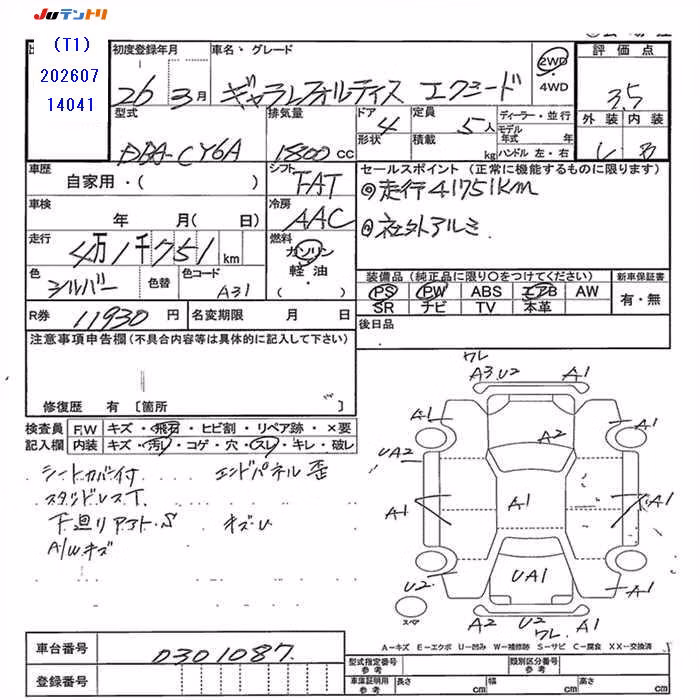 Juテントリ
(T1)
202607
14041
初度登録年月
車名・グレード
26年 3月
ギャランフォルティス エクシード
2WD
4WD
評価点
3.5
外装 内装
型式
DBA-CY6A
排気量
1800cc
ドア 形状
4
定員
5人
積載
kg
ディーラー・並行
モデル年式 年
ハンドル 左・右
車歴
自家用・( )
シフト
FAT
冷房
AAC
セールスポイント (正常に機能するものに限ります)
◎走行41751km
◎社外アルミ
車検
年 月( 日)
走行
4万1千751km
燃料
ガソリン
軽油
・( )
色
シルバー
色替
色コード
A31
装備品 (純正品に限り○をつけてください)
PS PW ABS エアB AW
SR ナビ TV 本革
新車保証書
有・無
R券 11930円
名変期限 月 日
後日品
注意事項申告欄(不具合内容等は具体的に記入して下さい)
修復歴 有 〔箇所 〕
検査員記入欄
F.W キズ・飛石・ヒビ割・リペア跡・×要
内装 キズ・汚レ・コゲ・穴・スレ・キレ・破レ
シートカバー付 エンドパネル歪
スタッドレスT.
下廻りアフト・S キズ・U
A/Wキズ
ワレ
A3 U2 A1
A1 A2 A1
UA2
A1 A1 A1
U2 UA1 A1
スペア
A2 U2 A1
ワレ
A-キズ E-エクボ U-凹み W-補修跡 S-サビ C-腐食 XX-交換済
車台番号 0301087
登録番号
型式指定番号 参考
類別区分番号 参考
車庫証明用 参考
長さ cm 幅 cm 高さ cm